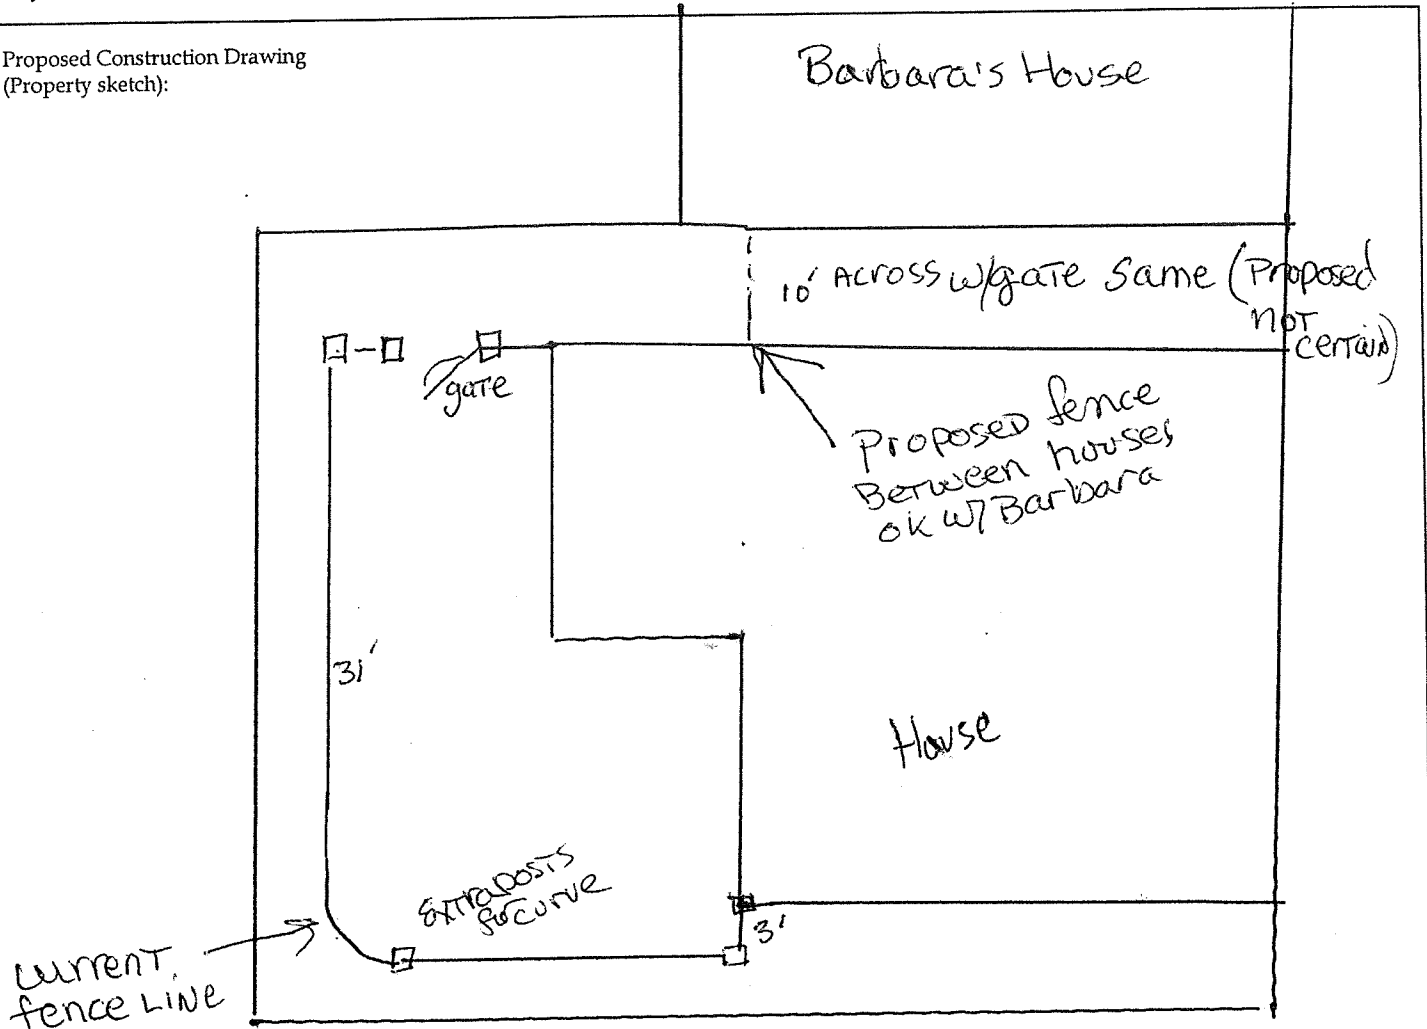 Proposed Construction Drawing
(Property sketch):
Barbara's House
10' ACROSS w/gate same (Proposed
not
certain)
gate
Proposed fence
Between houses
ok w/ Barbara
31'
House
Extra posts
for curve
3'
current
fence LINE